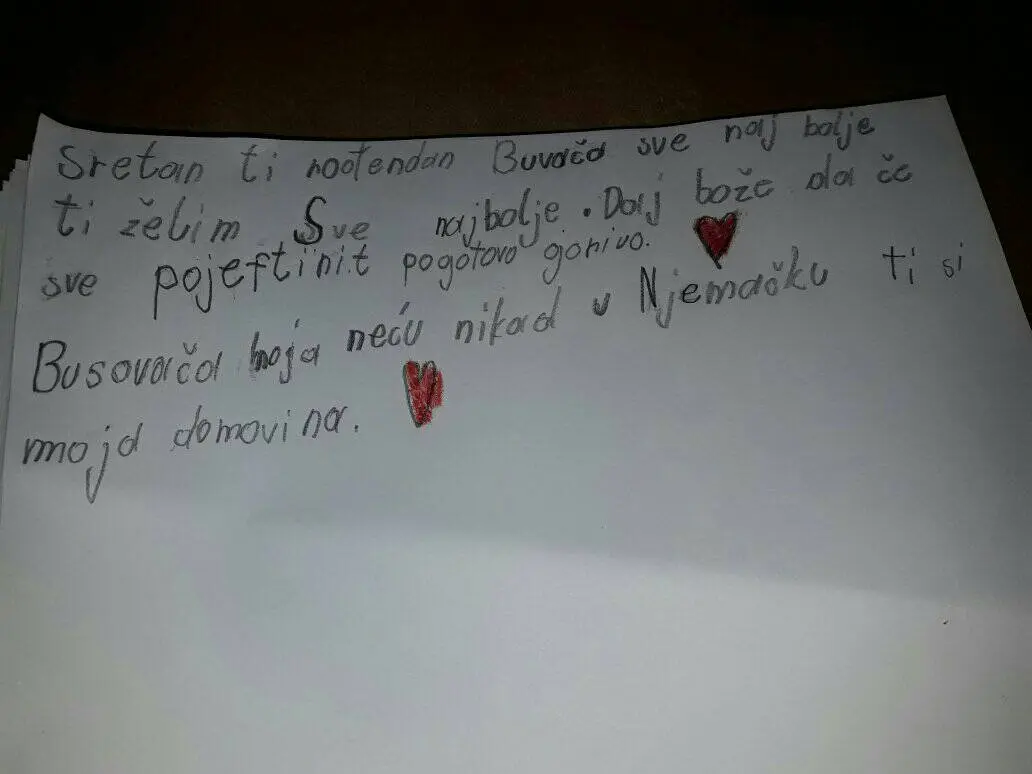 Sretan ti rođendan Buvača sve naj bolje
ti želim Sve najbolje. Daj bože da če
sve pojeftinit pogotovo gorivo.
Busovača moja neću nikad u Njemačku ti si
moja domovina.